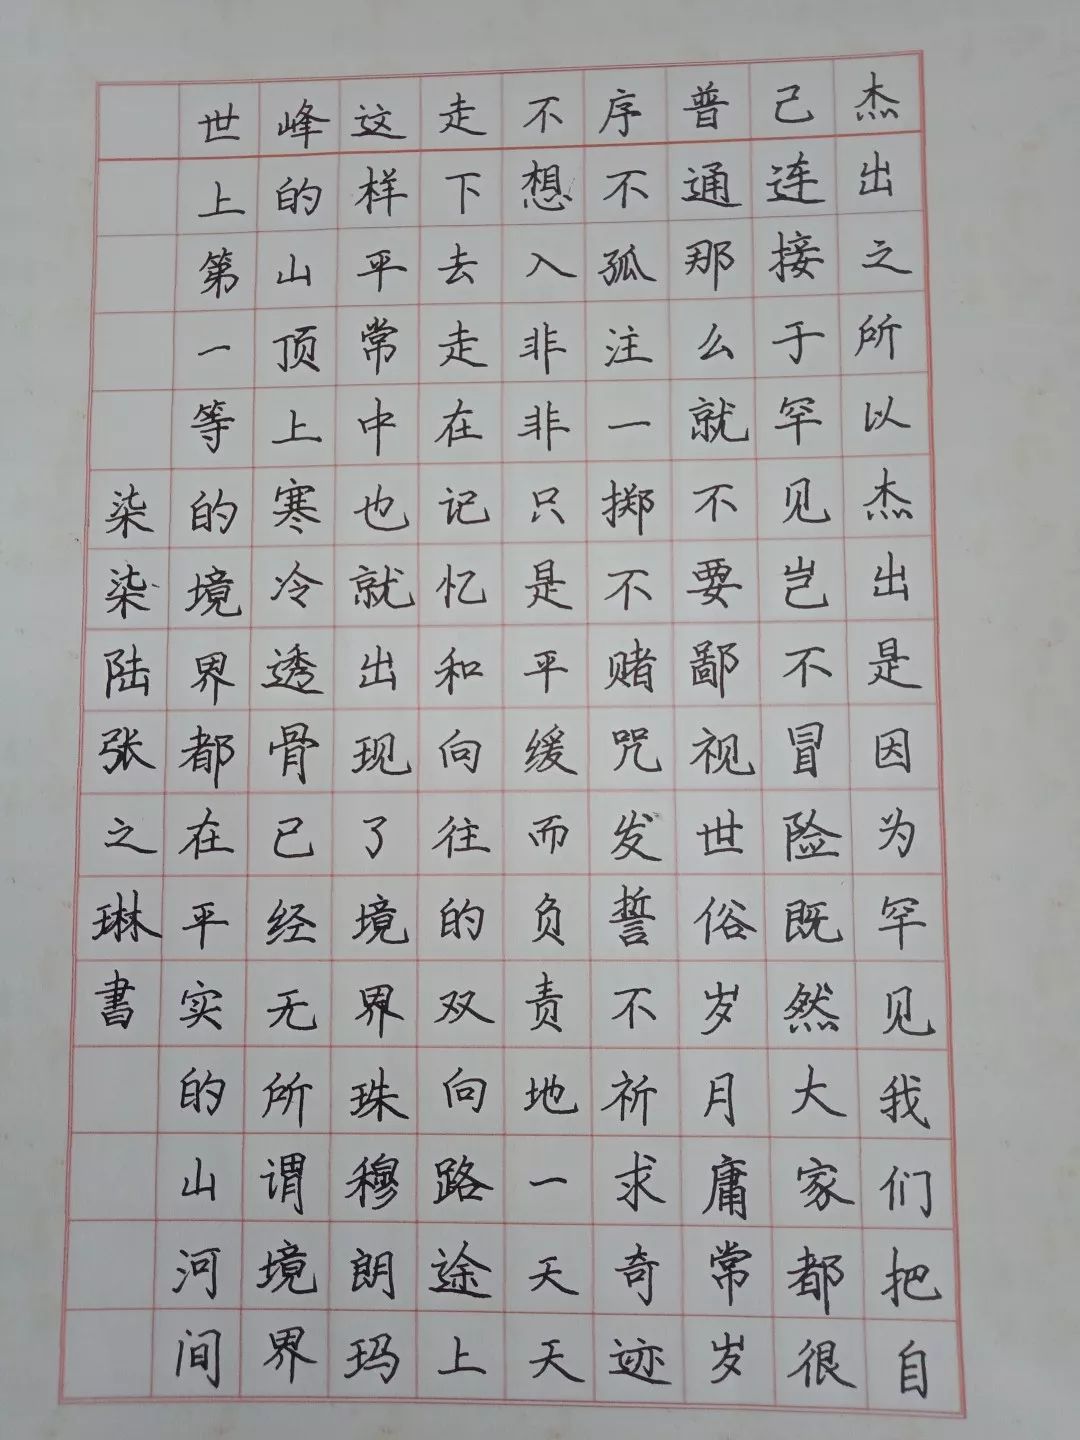 杰出之所以杰出是因为罕见我们把自
己连接于罕见岂不冒险既然大家都很
普通那么就不要鄙视世俗岁月庸常岁
序不孤注一掷不赌咒发誓不祈求奇迹
不想入非非只是平缓而负责地一天天
走下去走在记忆和向往的双向路途上
这样平常中也就出现了境界珠穆朗玛
峰的山顶上寒冷透骨已经无所谓境界
世上第一等的境界都在平实的山河间
柒柒陆张之琳書